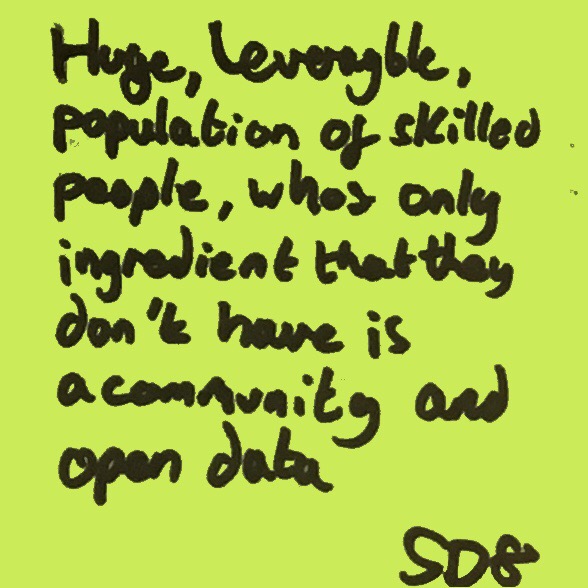 Huge, leveragble,
population of skilled
people, whos only
ingredient that they
don't have is
a community and
open data
SDG